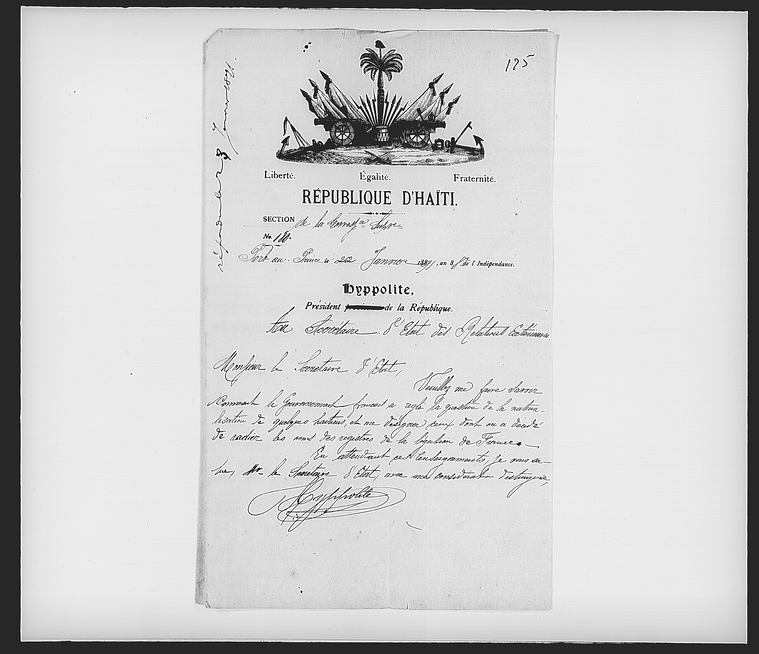 125
répondu le 23 Janvier 1891.
Liberté. Égalité. Fraternité.
RÉPUBLIQUE D'HAÏTI.
SECTION de la
No.
Port-au-Prince, le 22 Janvier 1891, an 88e de l'Indépendance.
Hyppolite,
Président provisoire de la République.
Au Secrétaire d'Etat des Relations Extérieures.
Monsieur le Secrétaire d'Etat,
Veuillez me faire savoir
comment le Gouvernement français a réglé la question de la natura-
lisation de quelques haïtiens, et me désigner ceux dont on a décidé
de radier les noms des registres de la légation de France.
En attendant ces renseignements, je vous sa-
lue, Mr le Secrétaire d'Etat, avec ma considération distinguée,
Hyppolite